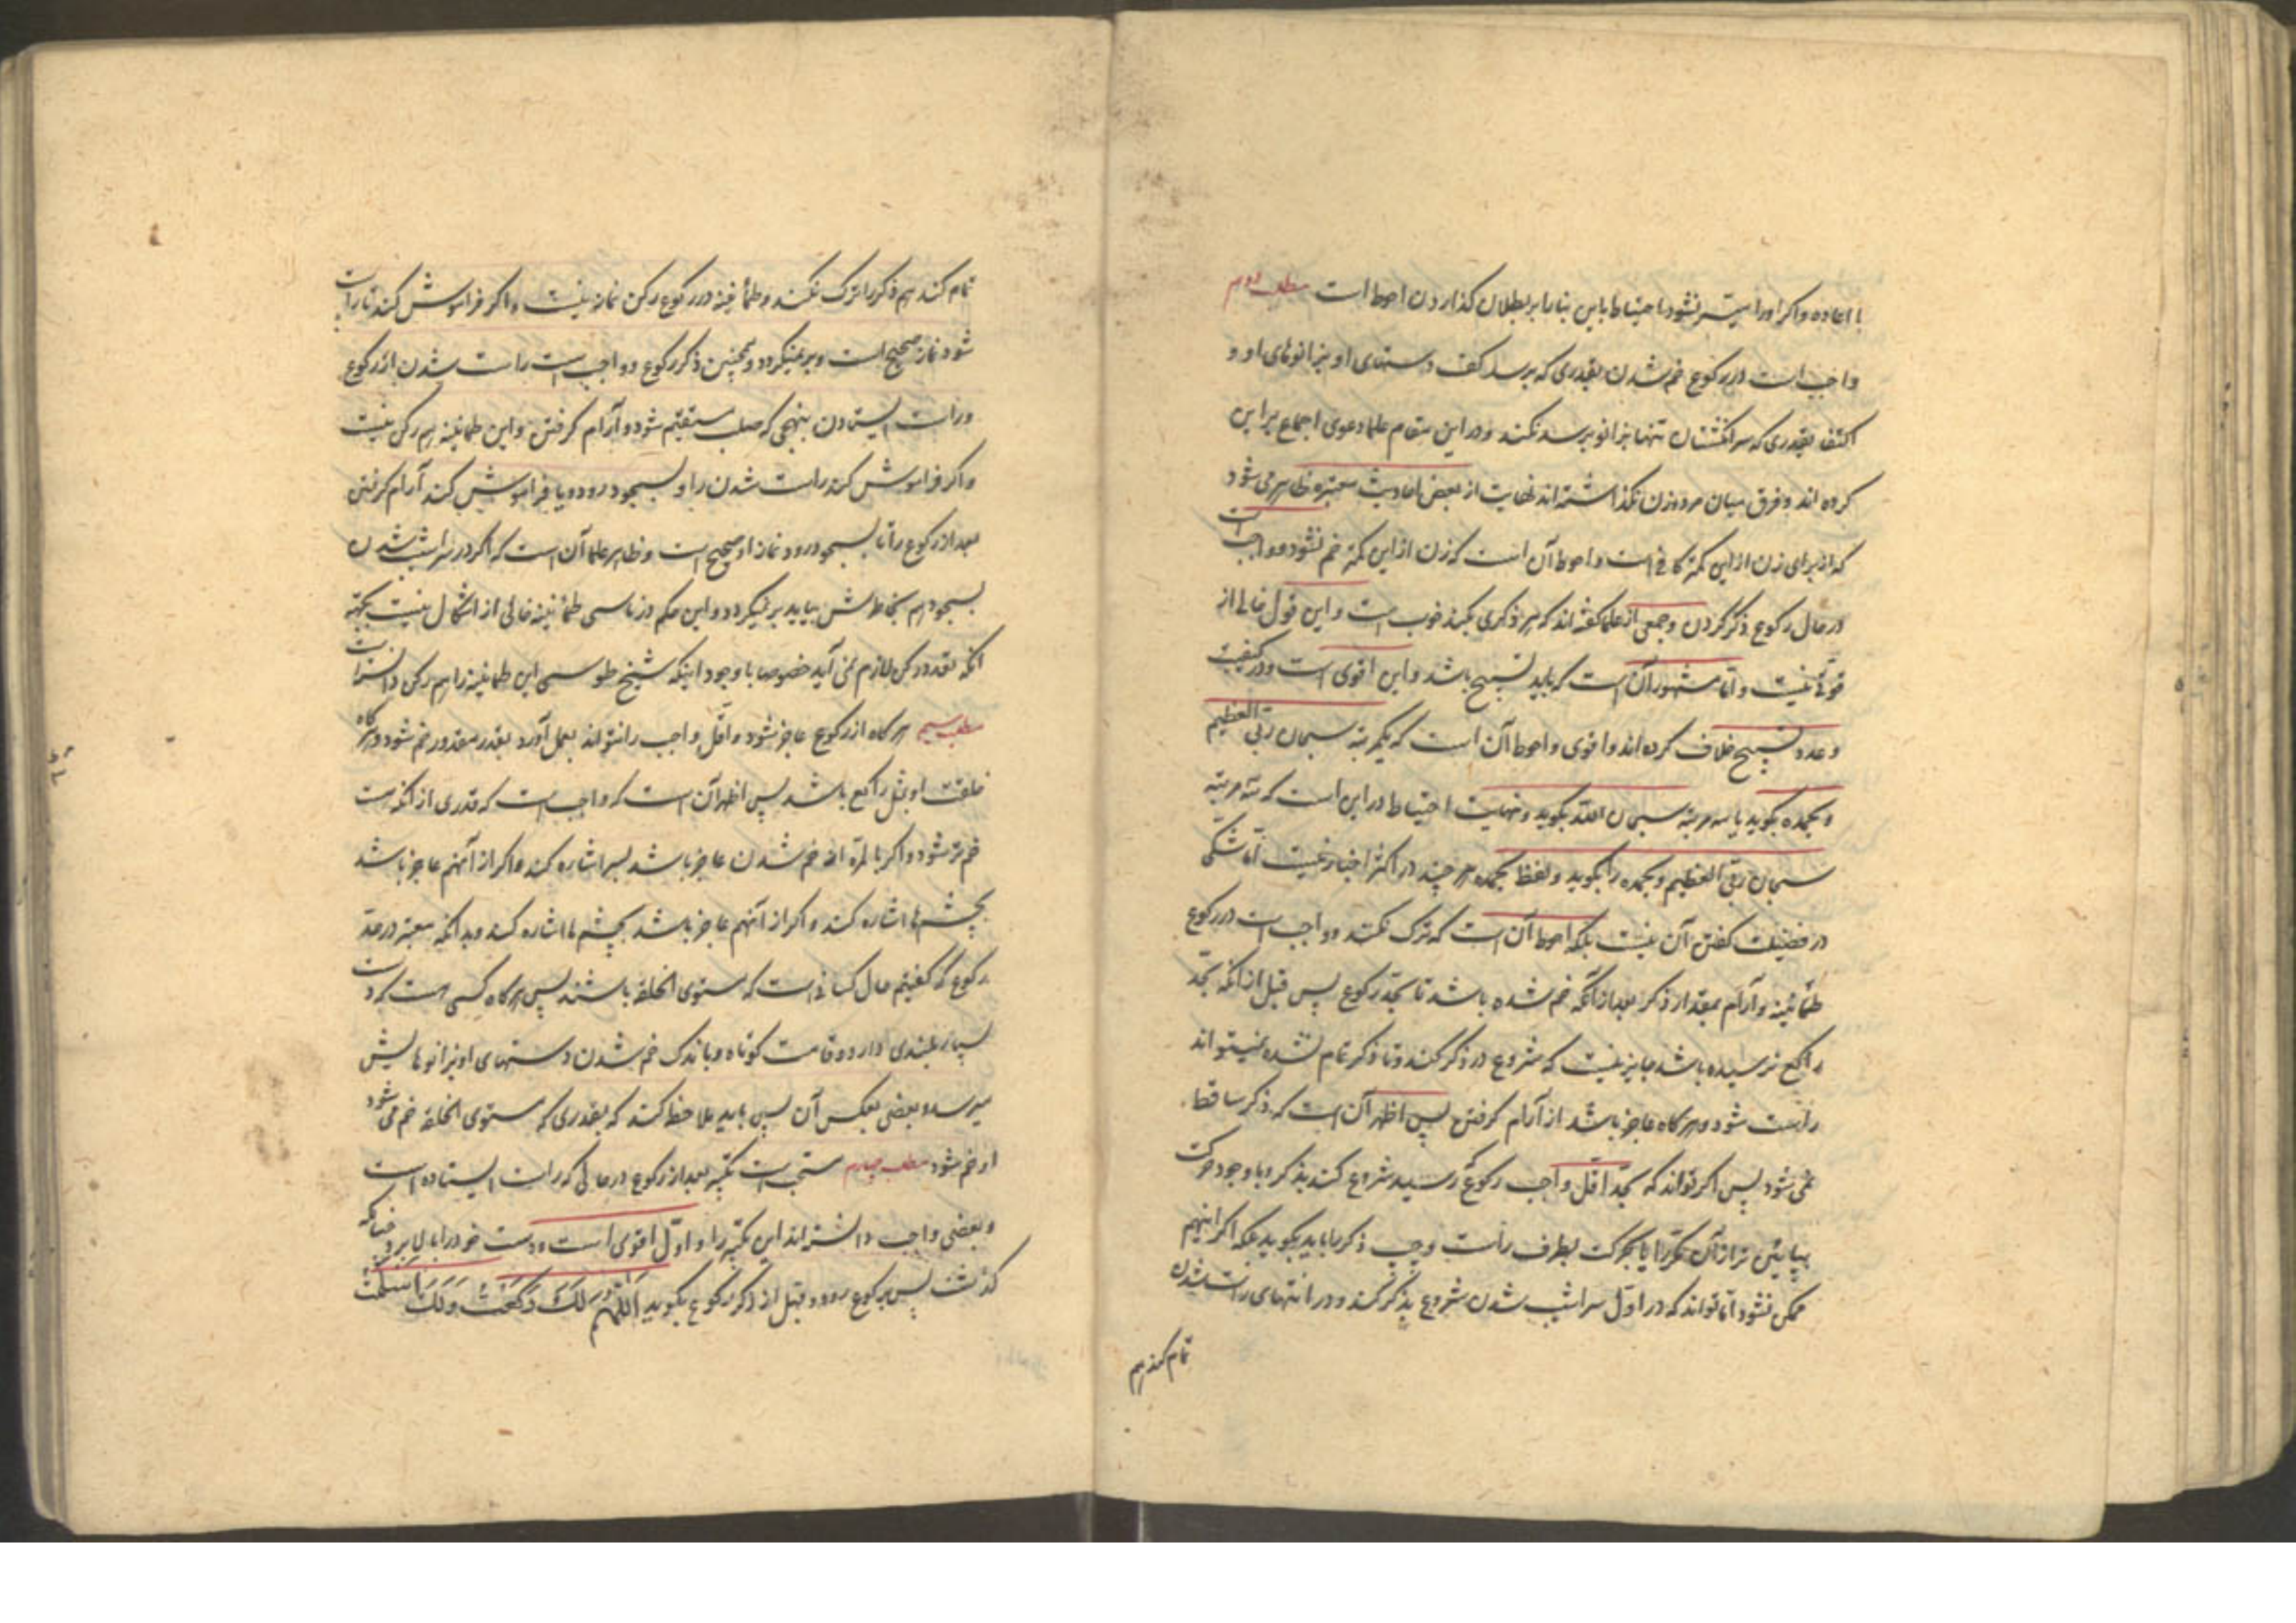 با اعاده و اکر او را میسر نشود احتیاط باین بنا را بر بطلان کذاردن احوط است مطلب دویم
واجب است در رکوع خم شدن بقدری که برسد کف دستهای او بزانوهای او و
اکتفا بقدری که سر انکشتان تنها بزانو برسد نکند و در این مقام علما دعوی اجماع بر این
کرده اند و فرق میان مرد و زن نکذاشته اند نهایت از بعض احادیث معتبره ظاهر می شود
که از برای زن از این کمتر کافی است و احوط آن است که زن از این کمتر خم نشود و واجب است
در حال رکوع ذکر کردن و جمعی از علما کفته اند که هر ذکری بکند خوب است و این قول خالی از
قوتی نیست و اما مشهور آن است که باید تسبیح باشد و این اقوی است و در کیفیت
و عدد تسبیح خلاف کرده اند و اقوی و احوط آن است که یکمرتبه سبحان ربی العظیم
و بحمده بکوید یا سه مرتبه سبحان الله بکوید و نهایت احتیاط در این است که سه مرتبه
سبحان ربی العظیم و بحمده را بکوید و لفظ بحمده هر چند در اکثر اخبار نیست اما شکی
در فضیلت کفتن آن نیست بلکه احوط آن است که ترک نکند و واجب است در رکوع
طمأنینه و آرام بمقدار ذکر بعد از آنکه خم شده باشد تا بحد رکوع پس قبل از آنکه بحد
راکع نرسیده باشد جایز نیست که شروع در ذکر کند و تا ذکر تمام نشده نمیتواند
راست شود و هر کاه عاجز باشد از آرام کرفتن پس اظهر آن است که ذکر ساقط
نمی شود پس اکر تواند که بحد اقل واجب رکوع رسید شروع کند بذکر و با وجود حرکت
بپایئن تر از آن مکررا یا بحرکت بطرف راست و چپ ذکر را باید بکوید بلکه اکر اینهم
ممکن نشود اما تواند که در اول سراشیب شدن شروع بذکر کند و در انتهای راست شدن
تمام کند هم
تمام کند هم ذکر را ترک نکند و طمأنینه در رکوع رکن نماز نیست و اکر فراموش کند تا راست
شود نماز صحیح است و بر نمیکردد و همچنین ذکر رکوع و واجب است راست شدن از رکوع
و راست ایستادن بنهجی که صلب مستقیم شود و آرام کرفتن و این طمانینه هم رکن نیست
و اکر فراموش کند راست شدن را و بسجود رود و یا فراموش کند آرام کرفتن
بعد از رکوع را تا بسجود رود نماز او صحیح است و ظاهر علما آن است که اکر در سراشیب شدن
بسجود هم بخاطرش بیاید بر نمیکردد و این حکم در ناسی طمأنینه خالی از اشکال نیست بجهة
انکه تعدد رکن لازم نمی آید خصوصا با وجود اینکه شیخ طوسی این طمانینه را هم رکن دانسته است
مطلب سیم هر کاه از رکوع عاجز شود و اقل واجب را نتواند بعمل آورد بقدر مقدور خم شود و هرکاه
خلقت او مثل راکع باشد پس اظهر آن است که واجب است که قدری از آنکه هست
خم تر شود و اکر بالمرة از خم شدن عاجز باشد بسر اشاره کند و اکر از آنهم عاجز باشد
بچشم ها اشاره کند و اکر از آنهم عاجز باشد بچشم ها اشاره کند و بدانکه معتبر در حد
رکوع که کفتیم حال کسانی است که مستوی الخلقه باشند پس هرکاه کسی هست که دست
بسیار بلندی دارد و قامت کوتاه و باندک خم شدن دستهای او بزانوهایش
میرسد و بعضی بعکس آن پس باید ملاحظه کند که بقدری که مستوی الخلقه خم می شود
او خم شود مطلب چهارم مستحب است تکبیر بعد از رکوع در حالی که راست ایستاده است
و بعضی واجب دانسته اند این تکبیر را و اول اقوی است و دست خود را بالا برد چنانکه
کذشت پس برکوع رود و قبل از ذکر رکوع بکوید اَللّهُمَ لَكَ رَکَعْتُ وَلَكَ اَسْلَمْتُ